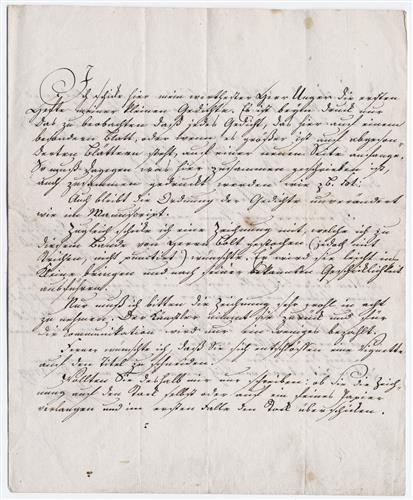 Ich schicke hier mein werthester Herr Unger die ersten
Hefte meiner kleinen Gedichte. Es ist beym Druck nur
das zu beobachten daß jedes Gedicht, das hier auf einem
besondern Blatt, oder wenn es größer ist auf abgeson-
derten Blättern steht, auf einer neuen Seite anfange.
So muß dagegen was hier zusammen geschrieben ist,
auch zusammen gedruckt werden wie z. B.
Auch bleibt die Ordnung der Gedichte unverändert
wie im Manuscript.
Zugleich schicke ich eine Zeichnung mit, welche ich zu
diesem Bande von Herrn Bolt gestochen (jedoch mit
Strichen, nicht punctirt) wünschte. Er wird sie leicht ins
Kleine bringen und nach seiner bekannten Geschicklichkeit
ausführen.
Nur muß ich bitten die Zeichnung sehr in acht
zu nehmen. Der Künstler nimmt sie zurück und für
die Communikation wird nur ein weniges bezahlt.
Ferner wünschte ich, daß Sie sich entschlössen eine Vignette
auf dem Titel zu schneiden.
Wollten Sie deshalb mir nur schreiben: ob Sie die Zeich-
nung auf den Stock selbst oder auf ein feines Papier
verlangen und im ersten Falle den Stock überschicken.